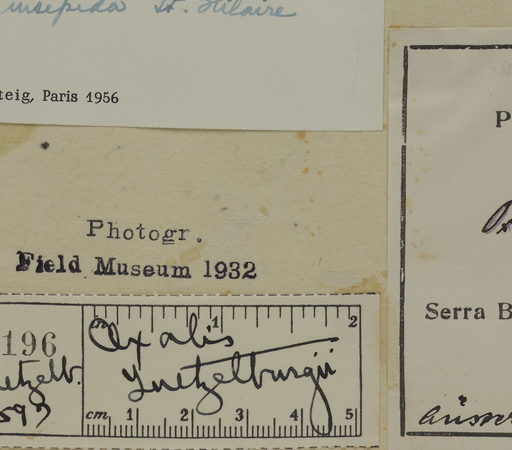 insipida St. Hilaire
teig, Paris 1956
Photogr.
Field Museum 1932
196
Oxalis
Luetzelburgii
etzelb.
593
1 2
cm 1 2 3 4 5
P
Serra B
äusser